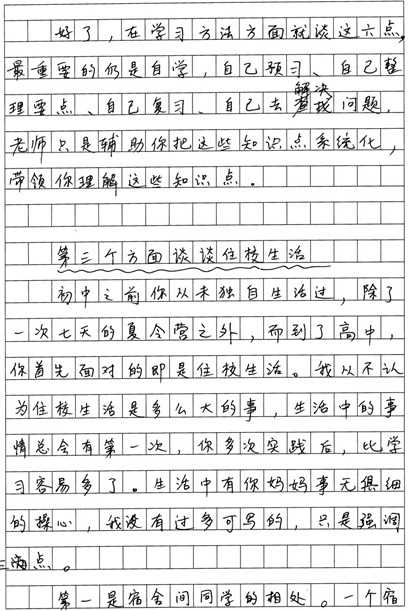 好了，在学习方法方面就谈这六点，
最重要的仍是自学，自己预习、自己整
理要点、自己复习、自己去解决问题，
老师只是辅助你把这些知识点系统化，
带领你理解这些知识点。
第三个方面谈谈住校生活
初中之前你从未独自生活过，除了
一次七天的夏令营之外，而到了高中，
你首先面对的即是住校生活。我从不认
为住校生活是多么大的事，生活中的事
情总会有第一次，你多次实践后，比学
习容易多了。生活中有你妈妈事无俱细
的操心，我没有过多可写的，只是强调
三点。
第一是宿舍间同学的相处。一个宿